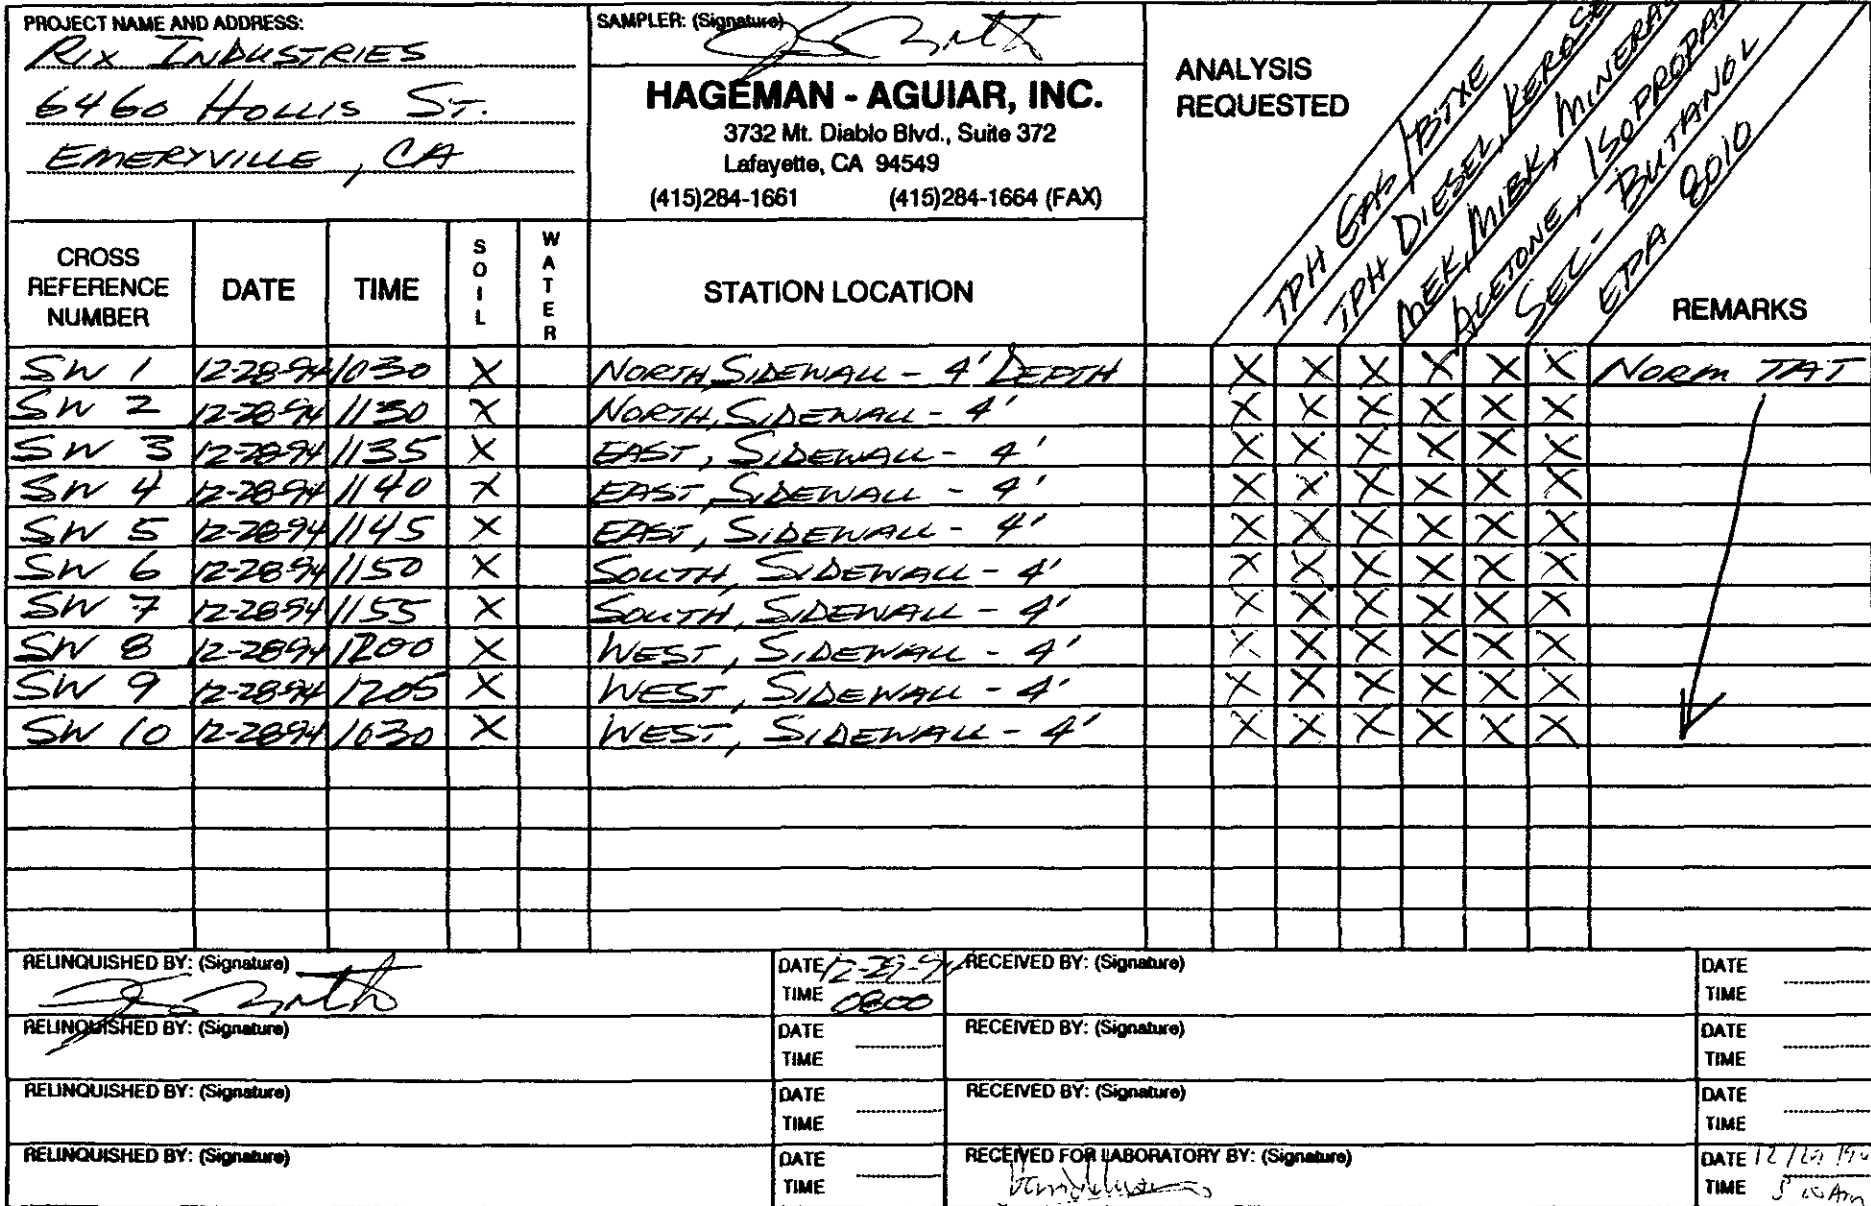 PROJECT NAME AND ADDRESS:
RIX INDUSTRIES
6460 HOLLIS ST.
EMERYVILLE, CA
SAMPLER: (Signature)
HAGEMAN - AGUIAR, INC.
3732 Mt. Diablo Blvd., Suite 372
Lafayette, CA 94549
(415)284-1661 (415)284-1664 (FAX)
ANALYSIS
REQUESTED
TPH GAS/BTXE
TPH DIESEL, KEROSE
MEK, MIBK, MINERAL
ACETONE, ISOPROPAN
SEC-BUTANOL
EPA 8010
CROSS REFERENCE NUMBER DATE TIME SOIL WATER STATION LOCATION REMARKS
SW 1 12-28-94 1030 X NORTH, SIDEWALL - 4' DEPTH X X X X X X NORM TAT
SW 2 12-28-94 1130 X NORTH, SIDEWALL - 4' X X X X X X
SW 3 12-28-94 1135 X EAST, SIDEWALL - 4' X X X X X X
SW 4 12-28-94 1140 X EAST, SIDEWALL - 4' X X X X X X
SW 5 12-28-94 1145 X EAST, SIDEWALL - 4' X X X X X X
SW 6 12-28-94 1150 X SOUTH, SIDEWALL - 4' X X X X X X
SW 7 12-28-94 1155 X SOUTH, SIDEWALL - 4' X X X X X X
SW 8 12-28-94 1200 X WEST, SIDEWALL - 4' X X X X X X
SW 9 12-28-94 1205 X WEST, SIDEWALL - 4' X X X X X X
SW 10 12-28-94 1030 X WEST, SIDEWALL - 4' X X X X X X
RELINQUISHED BY: (Signature) DATE 12-29-94 RECEIVED BY: (Signature) DATE
TIME 0800 TIME
RELINQUISHED BY: (Signature) DATE RECEIVED BY: (Signature) DATE
TIME TIME
RELINQUISHED BY: (Signature) DATE RECEIVED BY: (Signature) DATE
TIME TIME
RELINQUISHED BY: (Signature) DATE RECEIVED FOR LABORATORY BY: (Signature) DATE
TIME TIME